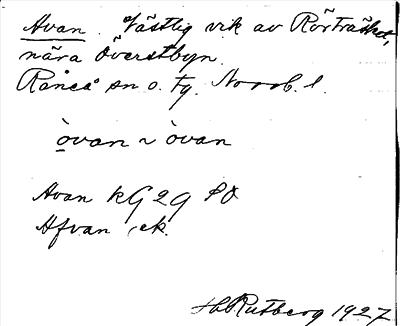 Avan. Västlig vik av Rörträsket,
nära Överstbyn.
Råneå sn o. tg. Norrb. l.
òvan ~ òvan
Avan kG 29 SO
Afvan, ek.
H Rutberg 1927